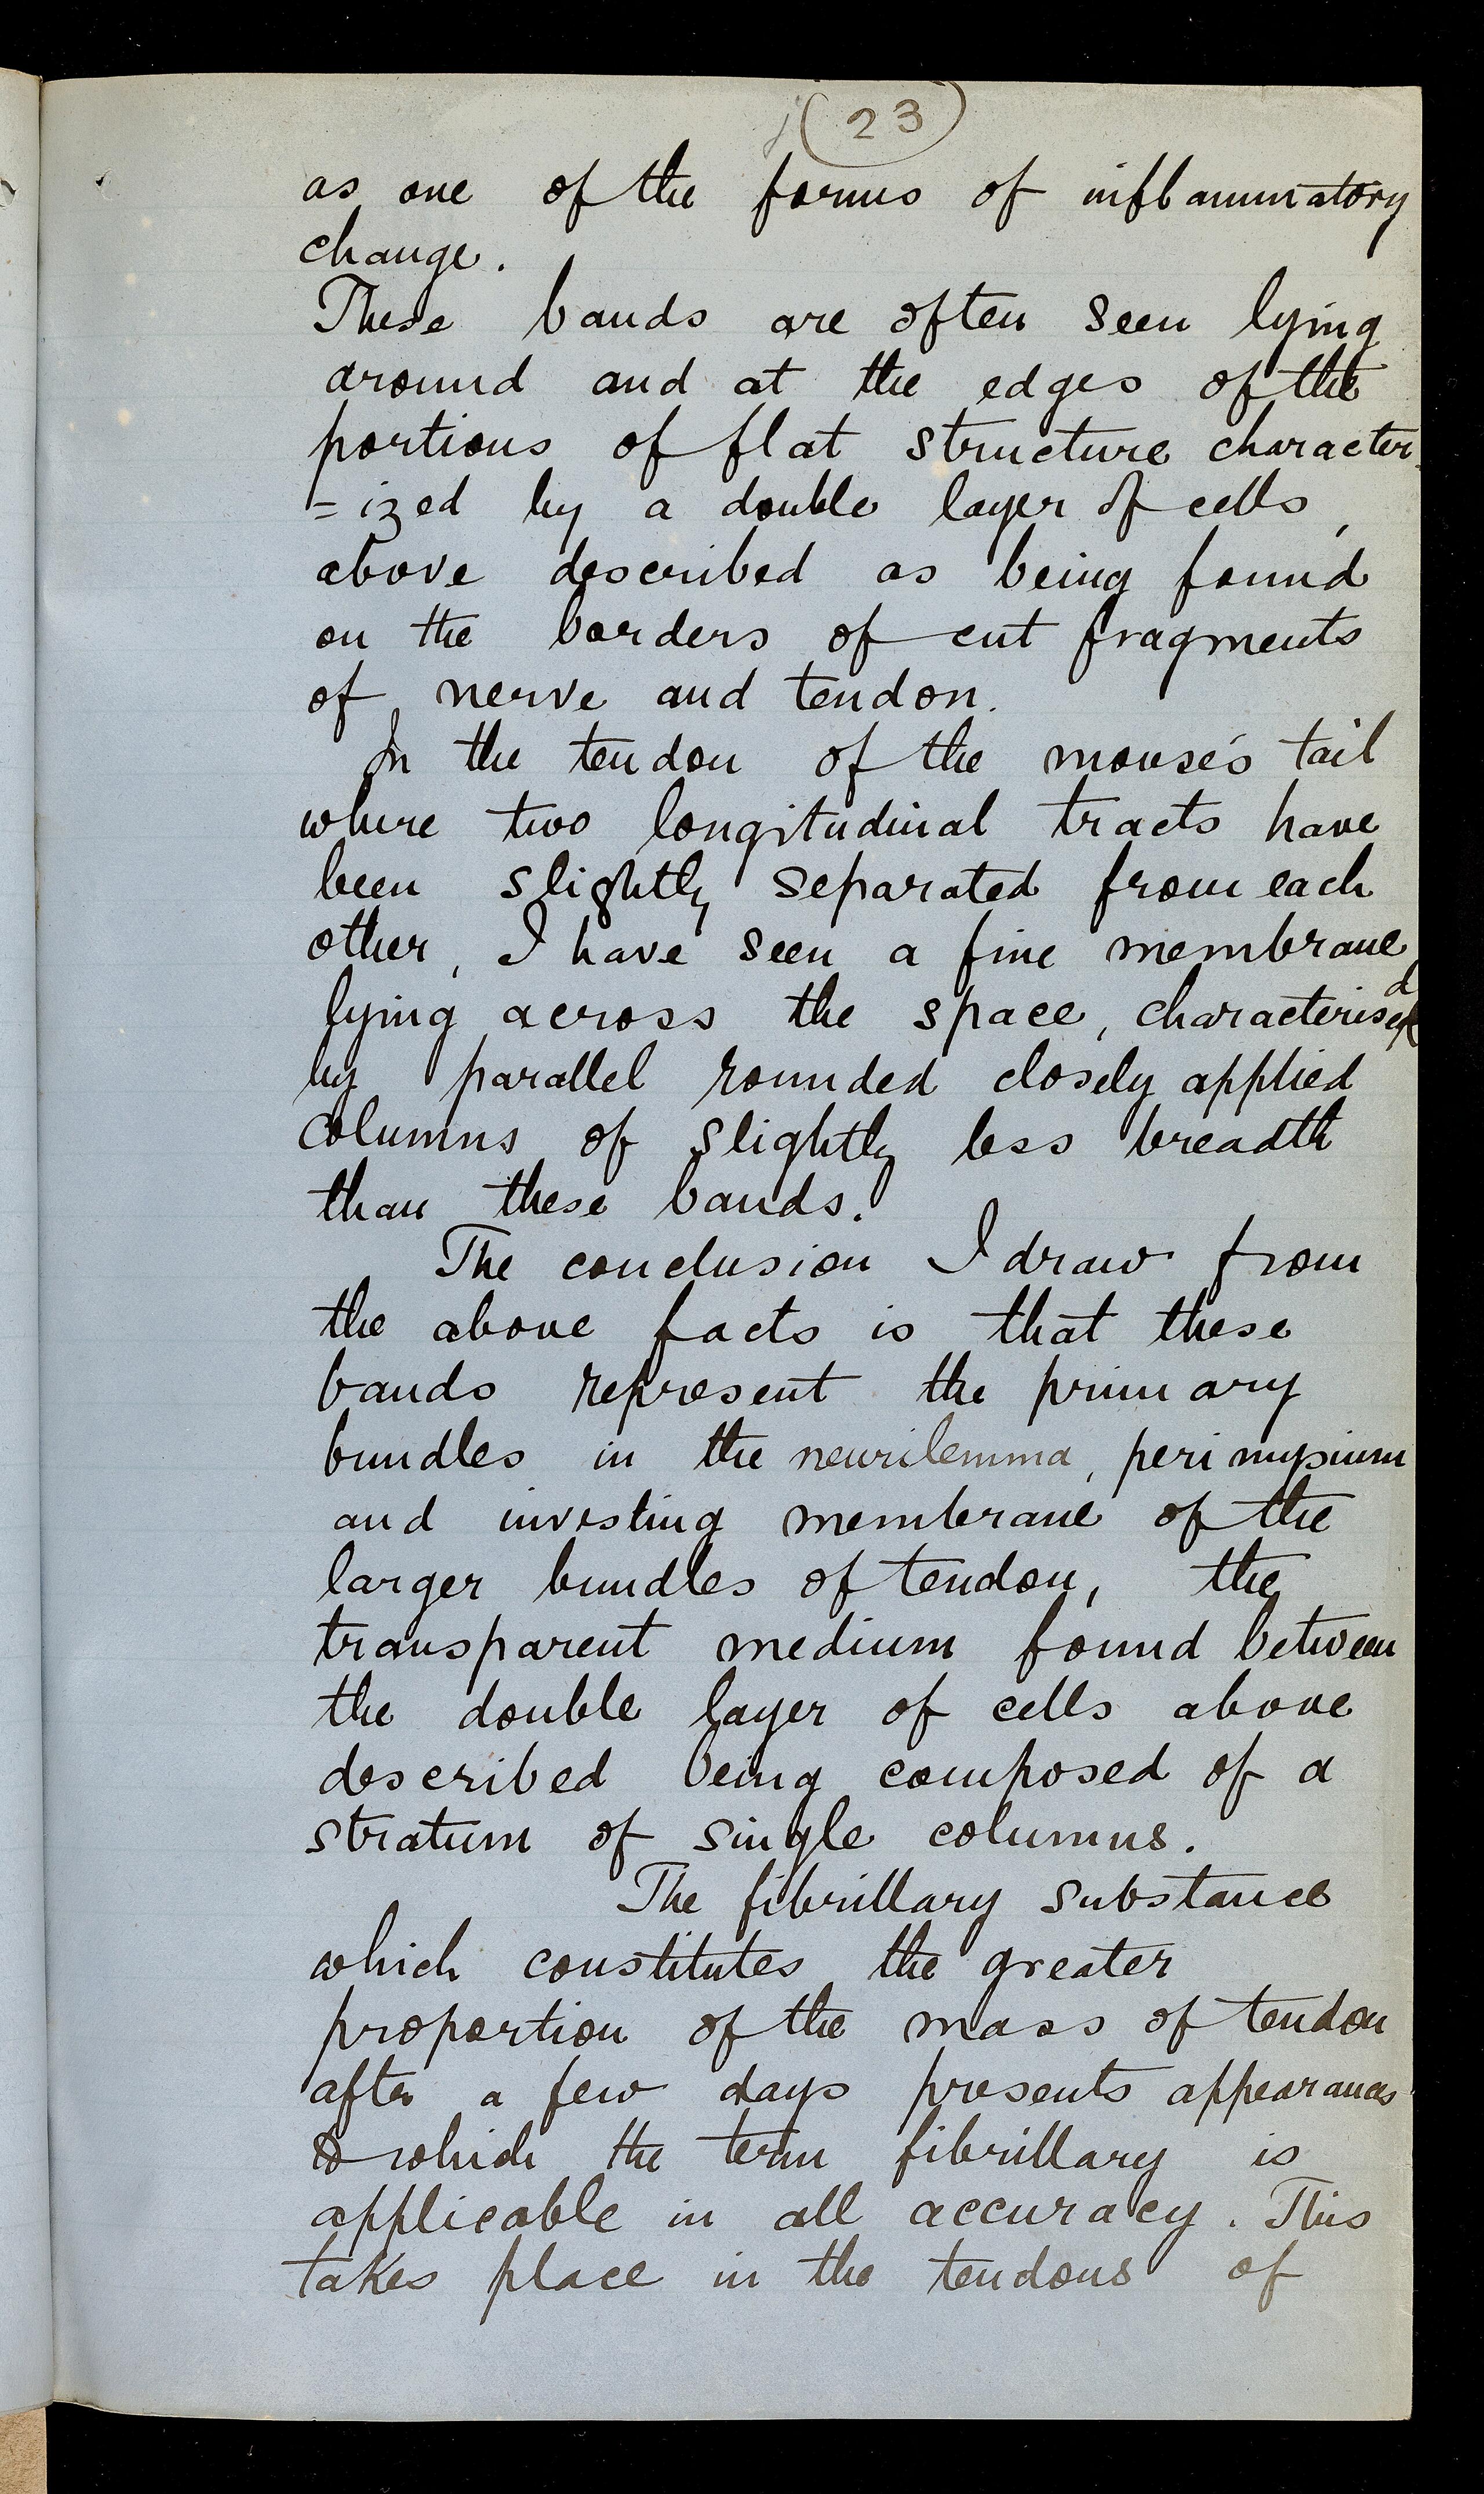 (23)
as one of the forms of inflammatory
change.
These bands are often seen lying
around and at the edges of the
portions of flat structure character
=ized by a double layer of cells,
above described as being found
on the borders of cut fragments
of nerve and tendon.
In the tendon of the mouse's tail
where two longitudinal tracts have
been slightly separated from each
other, I have seen a fine membrane
lying across the space, characterised
by parallel rounded closely applied
columns of slightly less breadth
than these bands.
The conclusion I draw from
the above facts is that these
bands represent the primary
bundles in the neurilemma, perimysium
and investing membrane of the
larger bundles of tendon, the
transparent medium found between
the double layer of cells above
described being composed of a
stratum of single columns.
The fibrillary substance
which constitutes the greater
proportion of the mass of tendon
after a few days presents appearances
to which the term fibrillary is
applicable in all accuracy. This
takes place in the tendons of